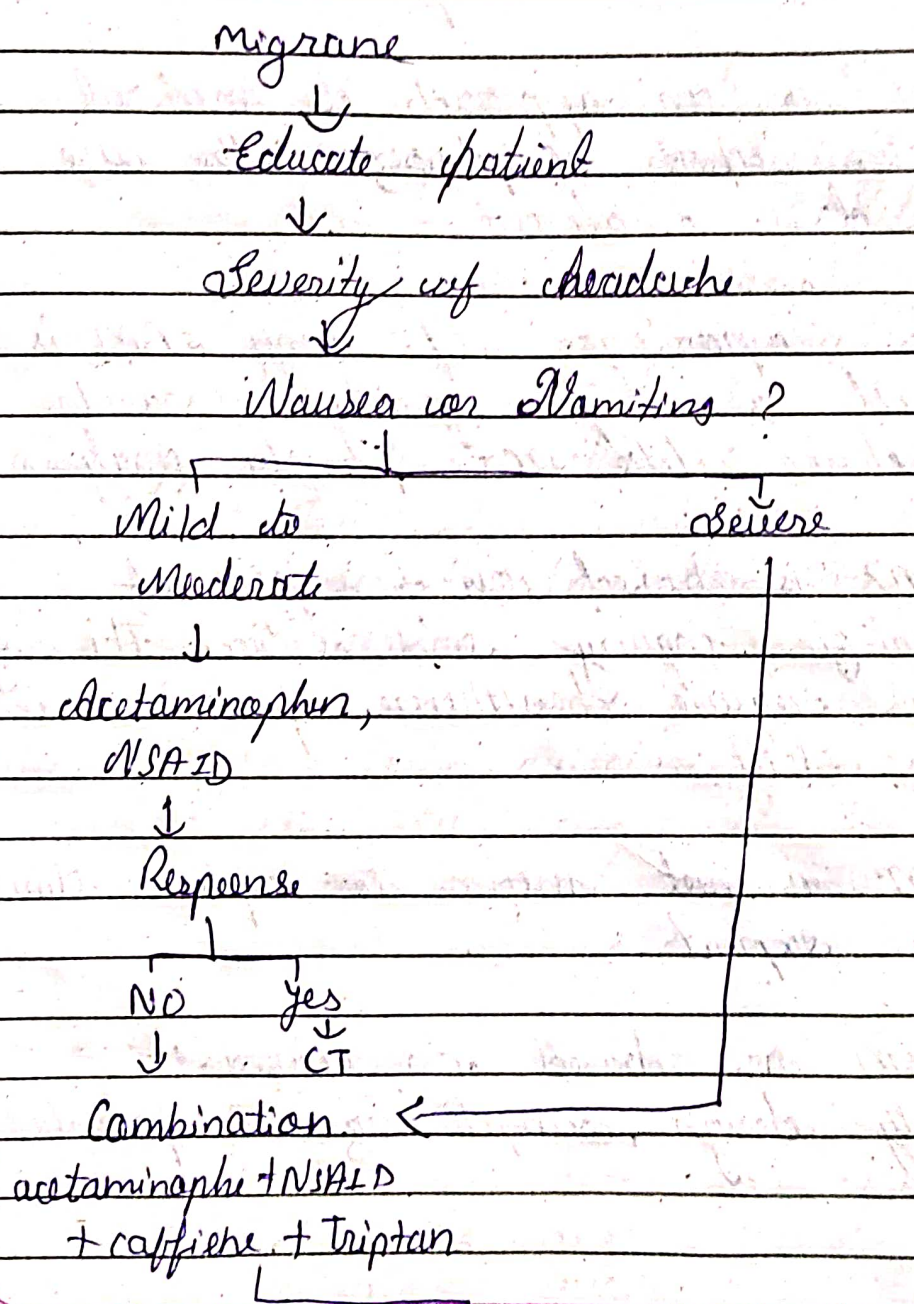 Migrane
Educate patient
Severity of headache
Nausea or Vamiting ?
Mild to
Moderate
Severe
Acetaminophen,
NSAID
Response
NO
Yes
CT
Combination
acetaminophe + NSAID
+ caffiene + Triptan